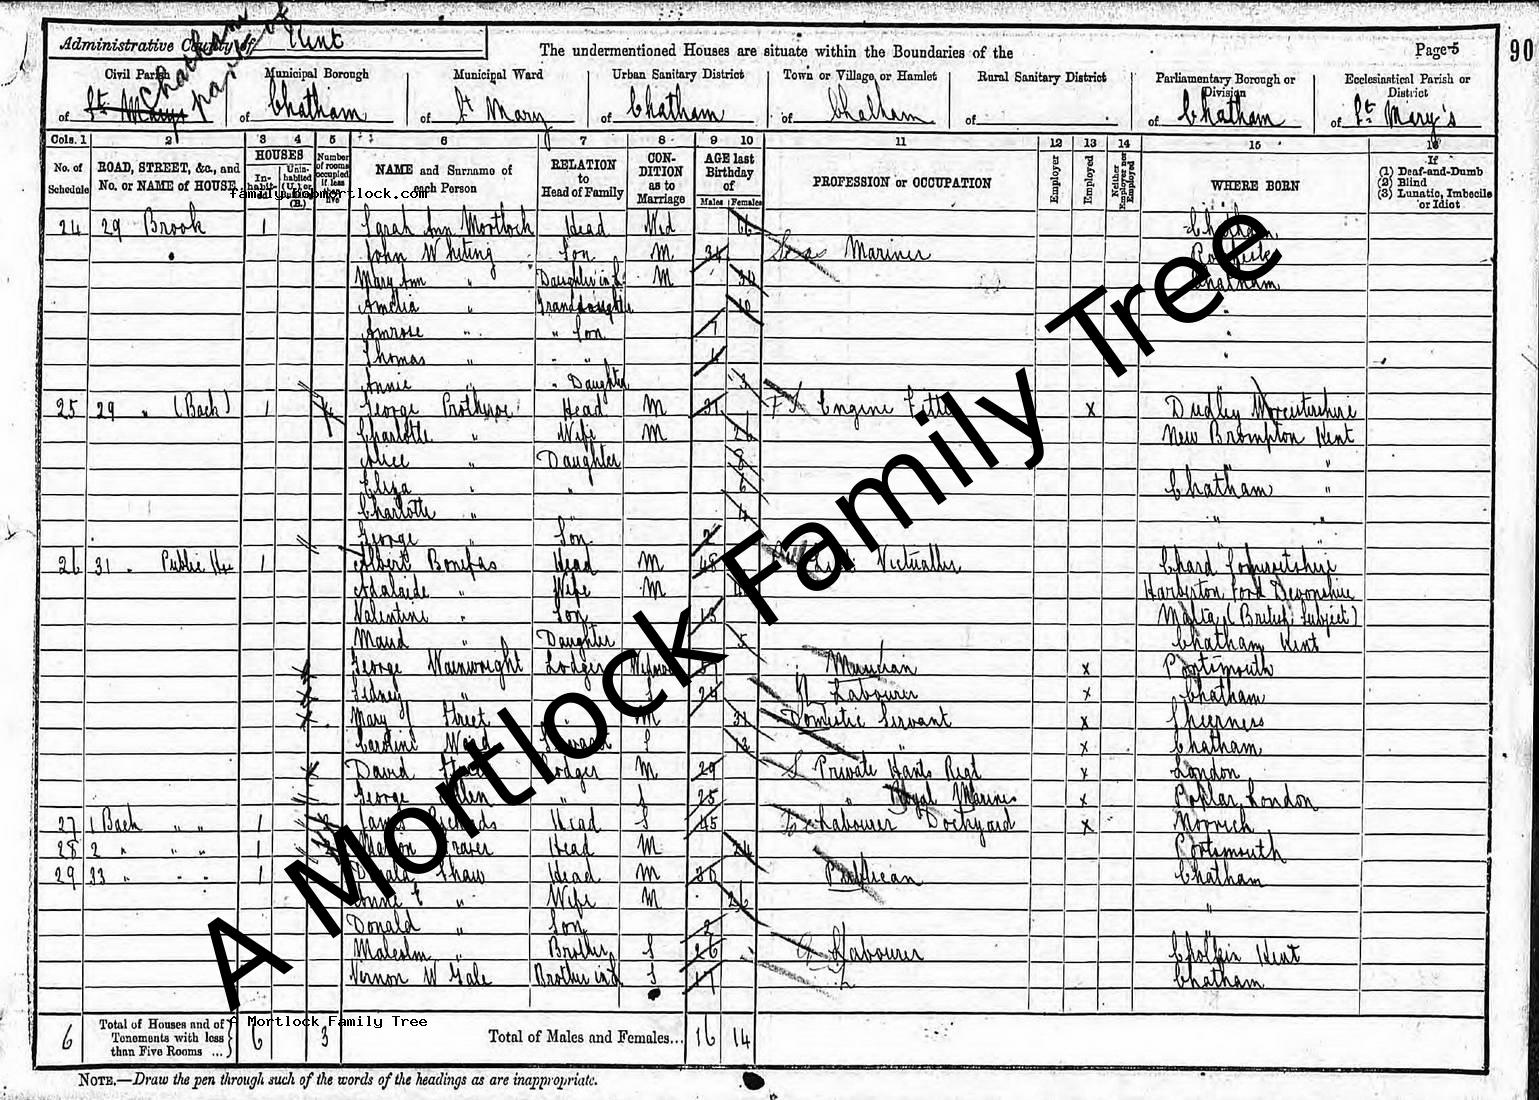 Administrative County of Kent
The undermentioned Houses are situate within the Boundaries of the
Page 5
90
Civil Parish
Municipal Borough
Municipal Ward
Urban Sanitary District
Town or Village or Hamlet
Rural Sanitary District
Parliamentary Borough or Division
Ecclesiastical Parish or District
of St. Mary's Chatham parish of
of Chatham
of St Mary
of Chatham
of Chatham
of
of Chatham
of St. Mary's
Cols. 1 2 3 4 5 6 7 8 9 10 11 12 13 14 15 16
No. of Schedule
ROAD, STREET, &c., and No. or NAME of HOUSE
HOUSES
Inhabited
Uninhabited (U.) or Building (B.)
Number of rooms occupied if less than five
NAME and Surname of each Person
RELATION to Head of Family
CONDITION as to Marriage
AGE last Birthday of
Males Females
PROFESSION or OCCUPATION
Employer
Employed
Neither Employer nor Employed
WHERE BORN
If
(1) Deaf-and-Dumb
(2) Blind
(3) Lunatic, Imbecile or Idiot
family.bobmortlock.com
24 29 Brook 1 Sarah Ann Mortlock Head Wid 66 Chatham
John Whiting Son M 34 Mariner
Mary Ann " Daughter in L. M 34 Chatham
Amelia " Granddaughter 10 "
Amrose " " Son 7 "
Thomas " " " "
Annie " " Daughter 3
25 29 " (Back) 1 George Head M 31 Engine Fitter x Dudley Worcestershire
Charlotte " Wife M 26 New Brompton Kent
Alice " Daughter 8 " "
Eliza " " 6 Chatham "
Charlotte " " 4 " "
George Son 2 "
26 31 " Public Hse 1 Albert Bonifas Head M 48 Victualler Chard Somersetshire
Adalaide " Wife M Harberton Ford Devonshire
Valentine " Son 13 Malta (British Subject)
Maud " Daughter 5 Chatham Kent
George Wainwright Lodger Widower Musician x Portsmouth
Sidney " " S 24 Labourer x Chatham
Mary J Street " M 31 Domestic Servant x Sheerness
Caroline Ward Servant S 18 " x Chatham
David Lodger M 29 Private Hants Regt x London
George " S 25 " Royal Marines x Poplar London
27 1 Back " " 1 James Head S 45 Labourer Dockyard x Norwich
28 2 " " " 1 Head M 24 Portsmouth
29 33 " " " 1 Donald Shaw Head M 30 Publican Chatham
Annie E " Wife M 26 "
Donald " Son 2 "
Malcolm " Brother S 26 Labourer Kent
Vernon W Gale Brother in L S 17 " Chatham
6 Total of Houses and of Tenements with less than Five Rooms ... 6 3 Total of Males and Females... 16 14
A Mortlock Family Tree
NOTE.—Draw the pen through such of the words of the headings as are inappropriate.
A Mortlock Family Tree